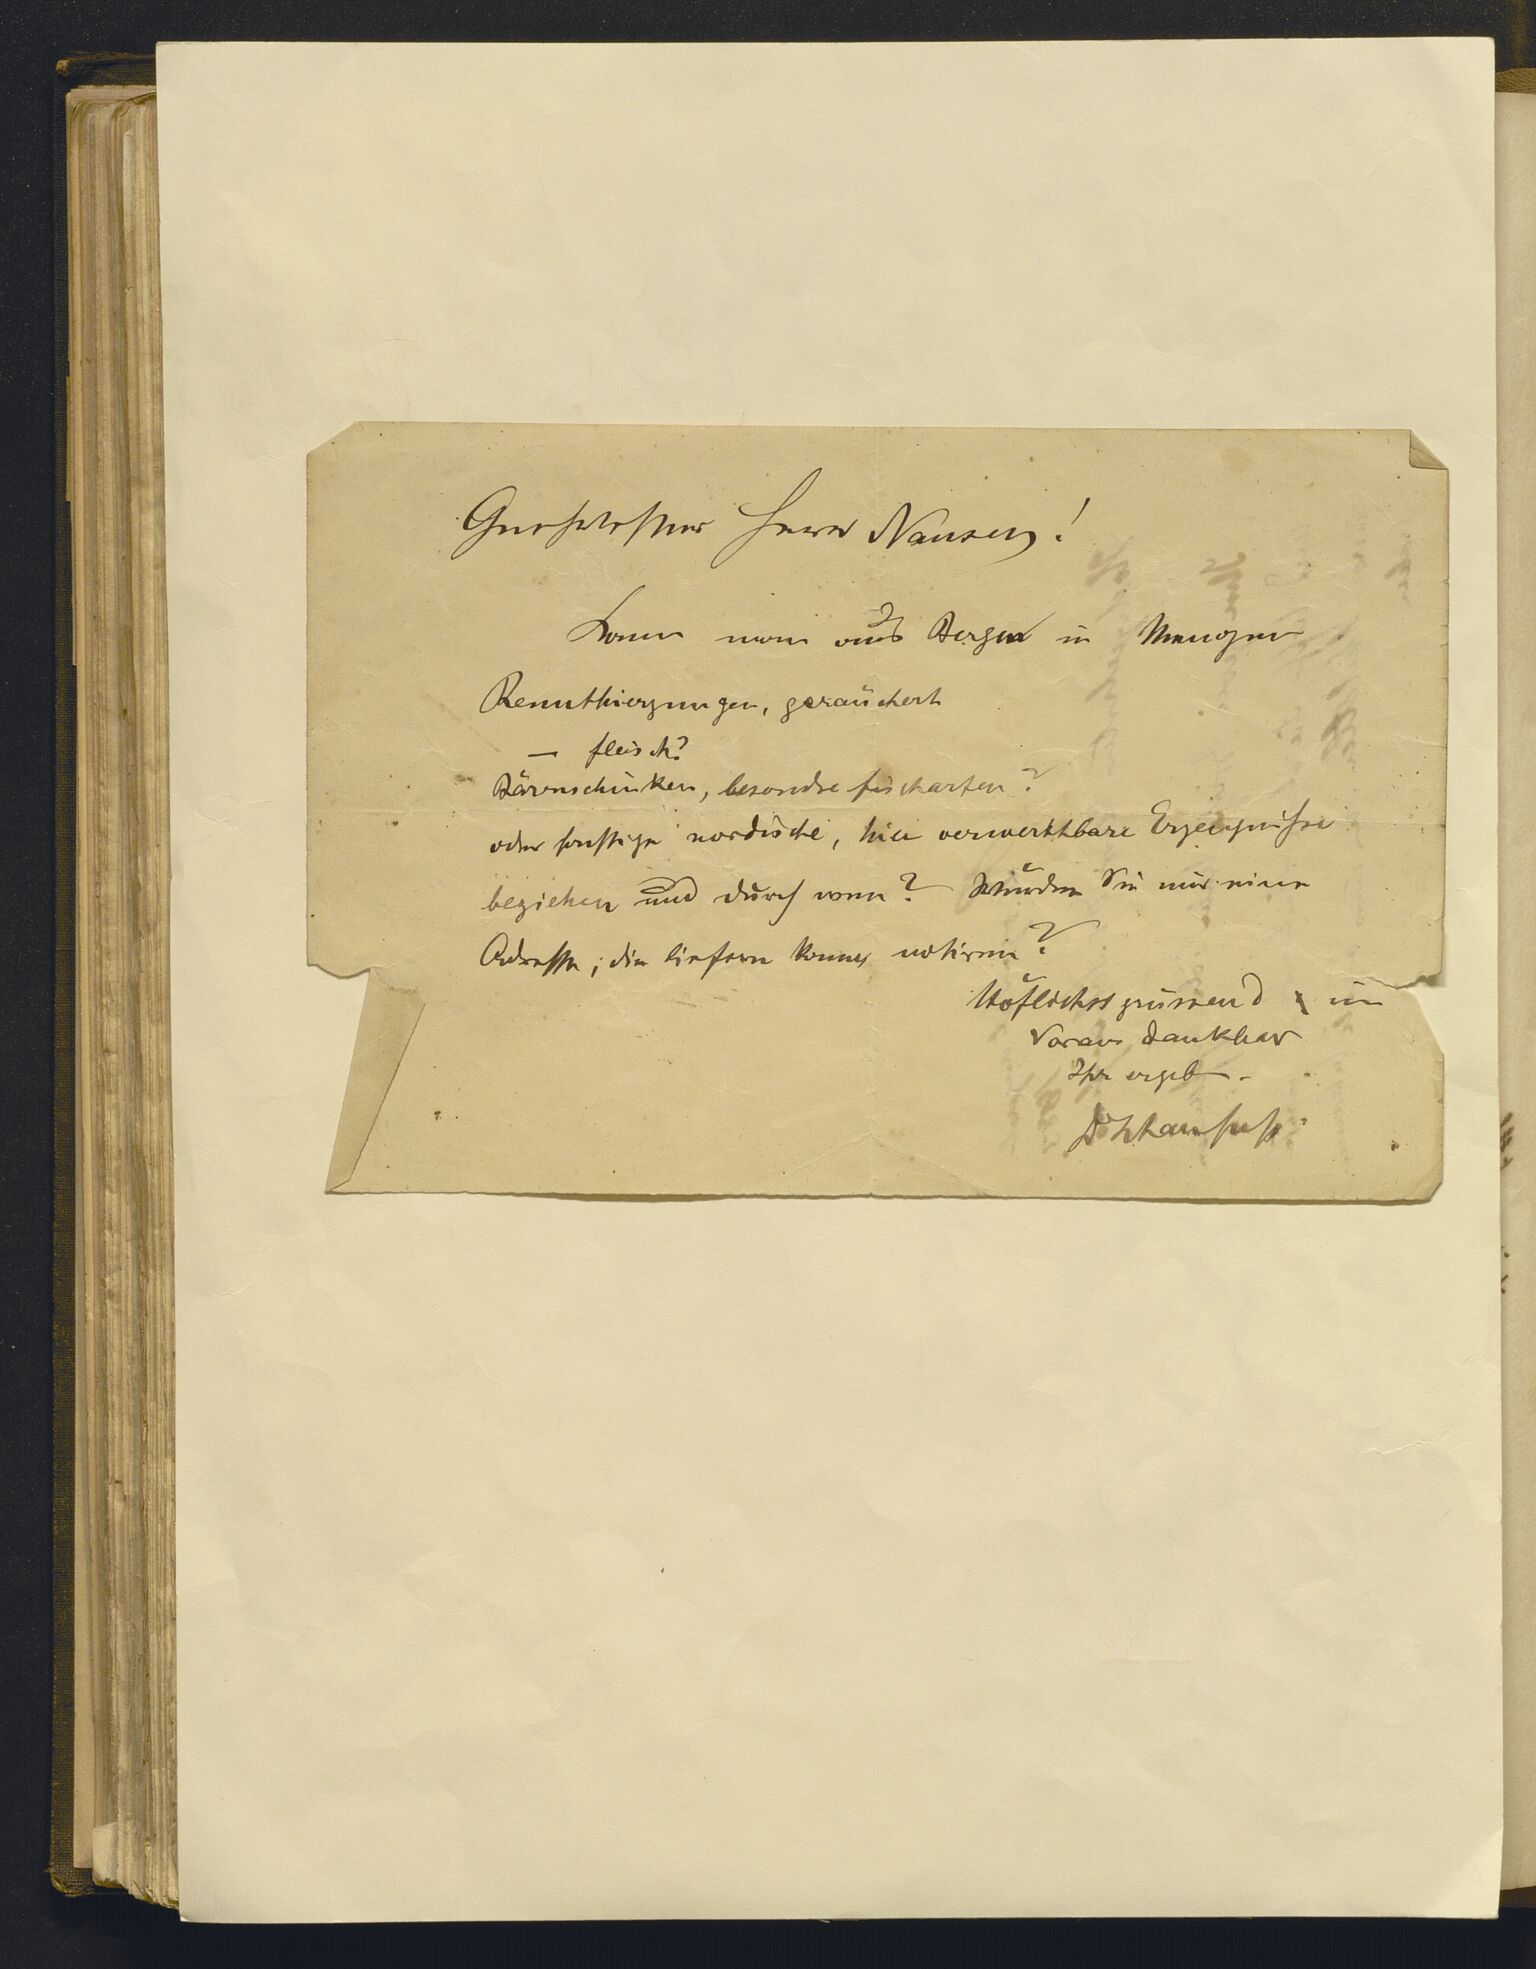 Geehrtester Herr Nansen!
Kann man aus Bergen in Mengen
Rennthierzungen, geräuchert
— fleisch?
Bärenschinken, besondre fischarten?
oder sonstige nordische, hier verwerthbare Erzeugnisse
beziehen und durch wen? Würden Sie mir eine
Adresse, die liefern kann, notiren?
Höflichst grüssend & im
Voraus dankbar
Ihr ergeb.